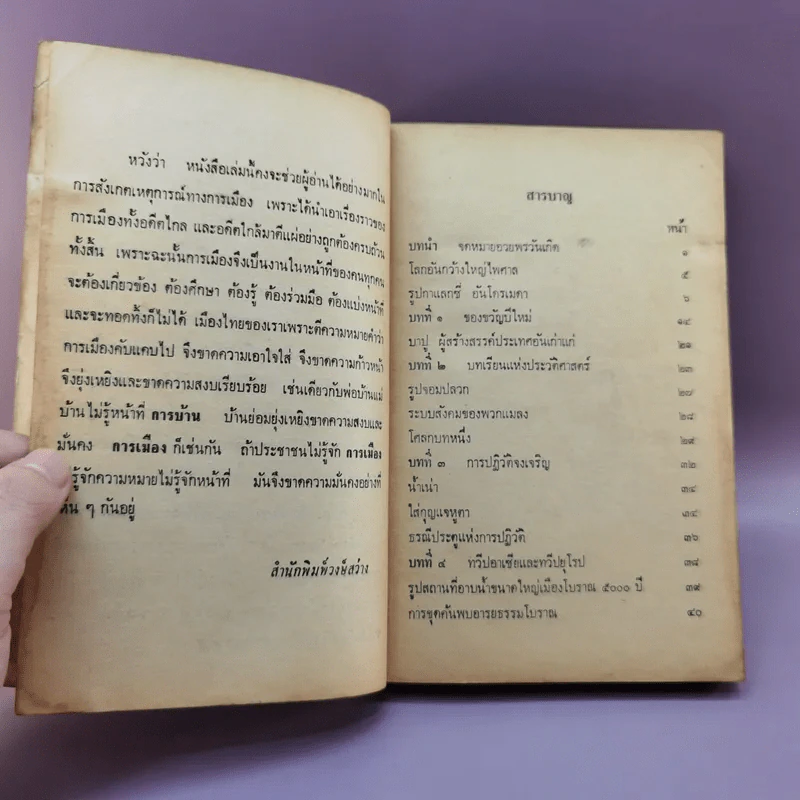 หวังว่า หนังสือเล่มนี้คงจะช่วยผู้อ่านได้อย่างมากใน
การสังเกตเหตุการณ์ทางการเมือง เพราะได้นำเอาเรื่องราวของ
การเมืองทั้งอดีตไกล และอดีตใกล้มาตีแผ่อย่างถูกต้องครบถ้วน
ทั้งสิ้น เพราะฉะนั้นการเมืองจึงเป็นงานในหน้าที่ของคนทุกคน
จะต้องเกี่ยวข้อง ต้องศึกษา ต้องรู้ ต้องร่วมมือ ต้องแบ่งหน้าที่
และจะทอดทิ้งก็ไม่ได้ เมืองไทยของเราเพราะตีความหมายคำว่า
การเมืองคับแคบไป จึงขาดความเอาใจใส่ จึงขาดความก้าวหน้า
จึงยุ่งเหยิงและขาดความสงบเรียบร้อย เช่นเดียวกับพ่อบ้านแม่
บ้านไม่รู้หน้าที่ การบ้าน บ้านย่อมยุ่งเหยิงขาดความสงบและ
มั่นคง การเมือง ก็เช่นกัน ถ้าประชาชนไม่รู้จัก การเมือง
รู้จักความหมายไม่รู้จักหน้าที่ มันจึงขาดความมั่นคงอย่างที่
ๆ กันอยู่
สำนักพิมพ์วงษ์สว่าง
สารบาญ
หน้า
บทนำ จดหมายอวยพรวันเกิด ๑
โลกอันกว้างใหญ่ไพศาล ๕
รูปกาแลกซี่ อันโดรเมดา ๖
บทที่ ๑ ของขวัญปีใหม่ ๑๔
บาปู ผู้สร้างสรรค์ประเทศอันเก่าแก่ ๒๑
บทที่ ๒ บทเรียนแห่งประวัติศาสตร์ ๒๓
รูปจอมปลวก ๒๗
ระบบสังคมของพวกแมลง ๒๘
โศลกบทหนึ่ง ๒๙
บทที่ ๓ การปฏิวัติจงเจริญ ๓๒
น้ำเน่า ๓๔
ใส่กุญแจหูตา ๓๔
ธรณีประตูแห่งการปฏิวัติ ๓๖
บทที่ ๔ ทวีปอาเซียและทวีปยุโรป ๓๘
รูปสถานที่อาบน้ำขนาดใหญ่เมืองโบราณ ๕๐๐๐ ปี ๓๙
การขุดค้นพบอารยธรรมโบราณ ๔๐